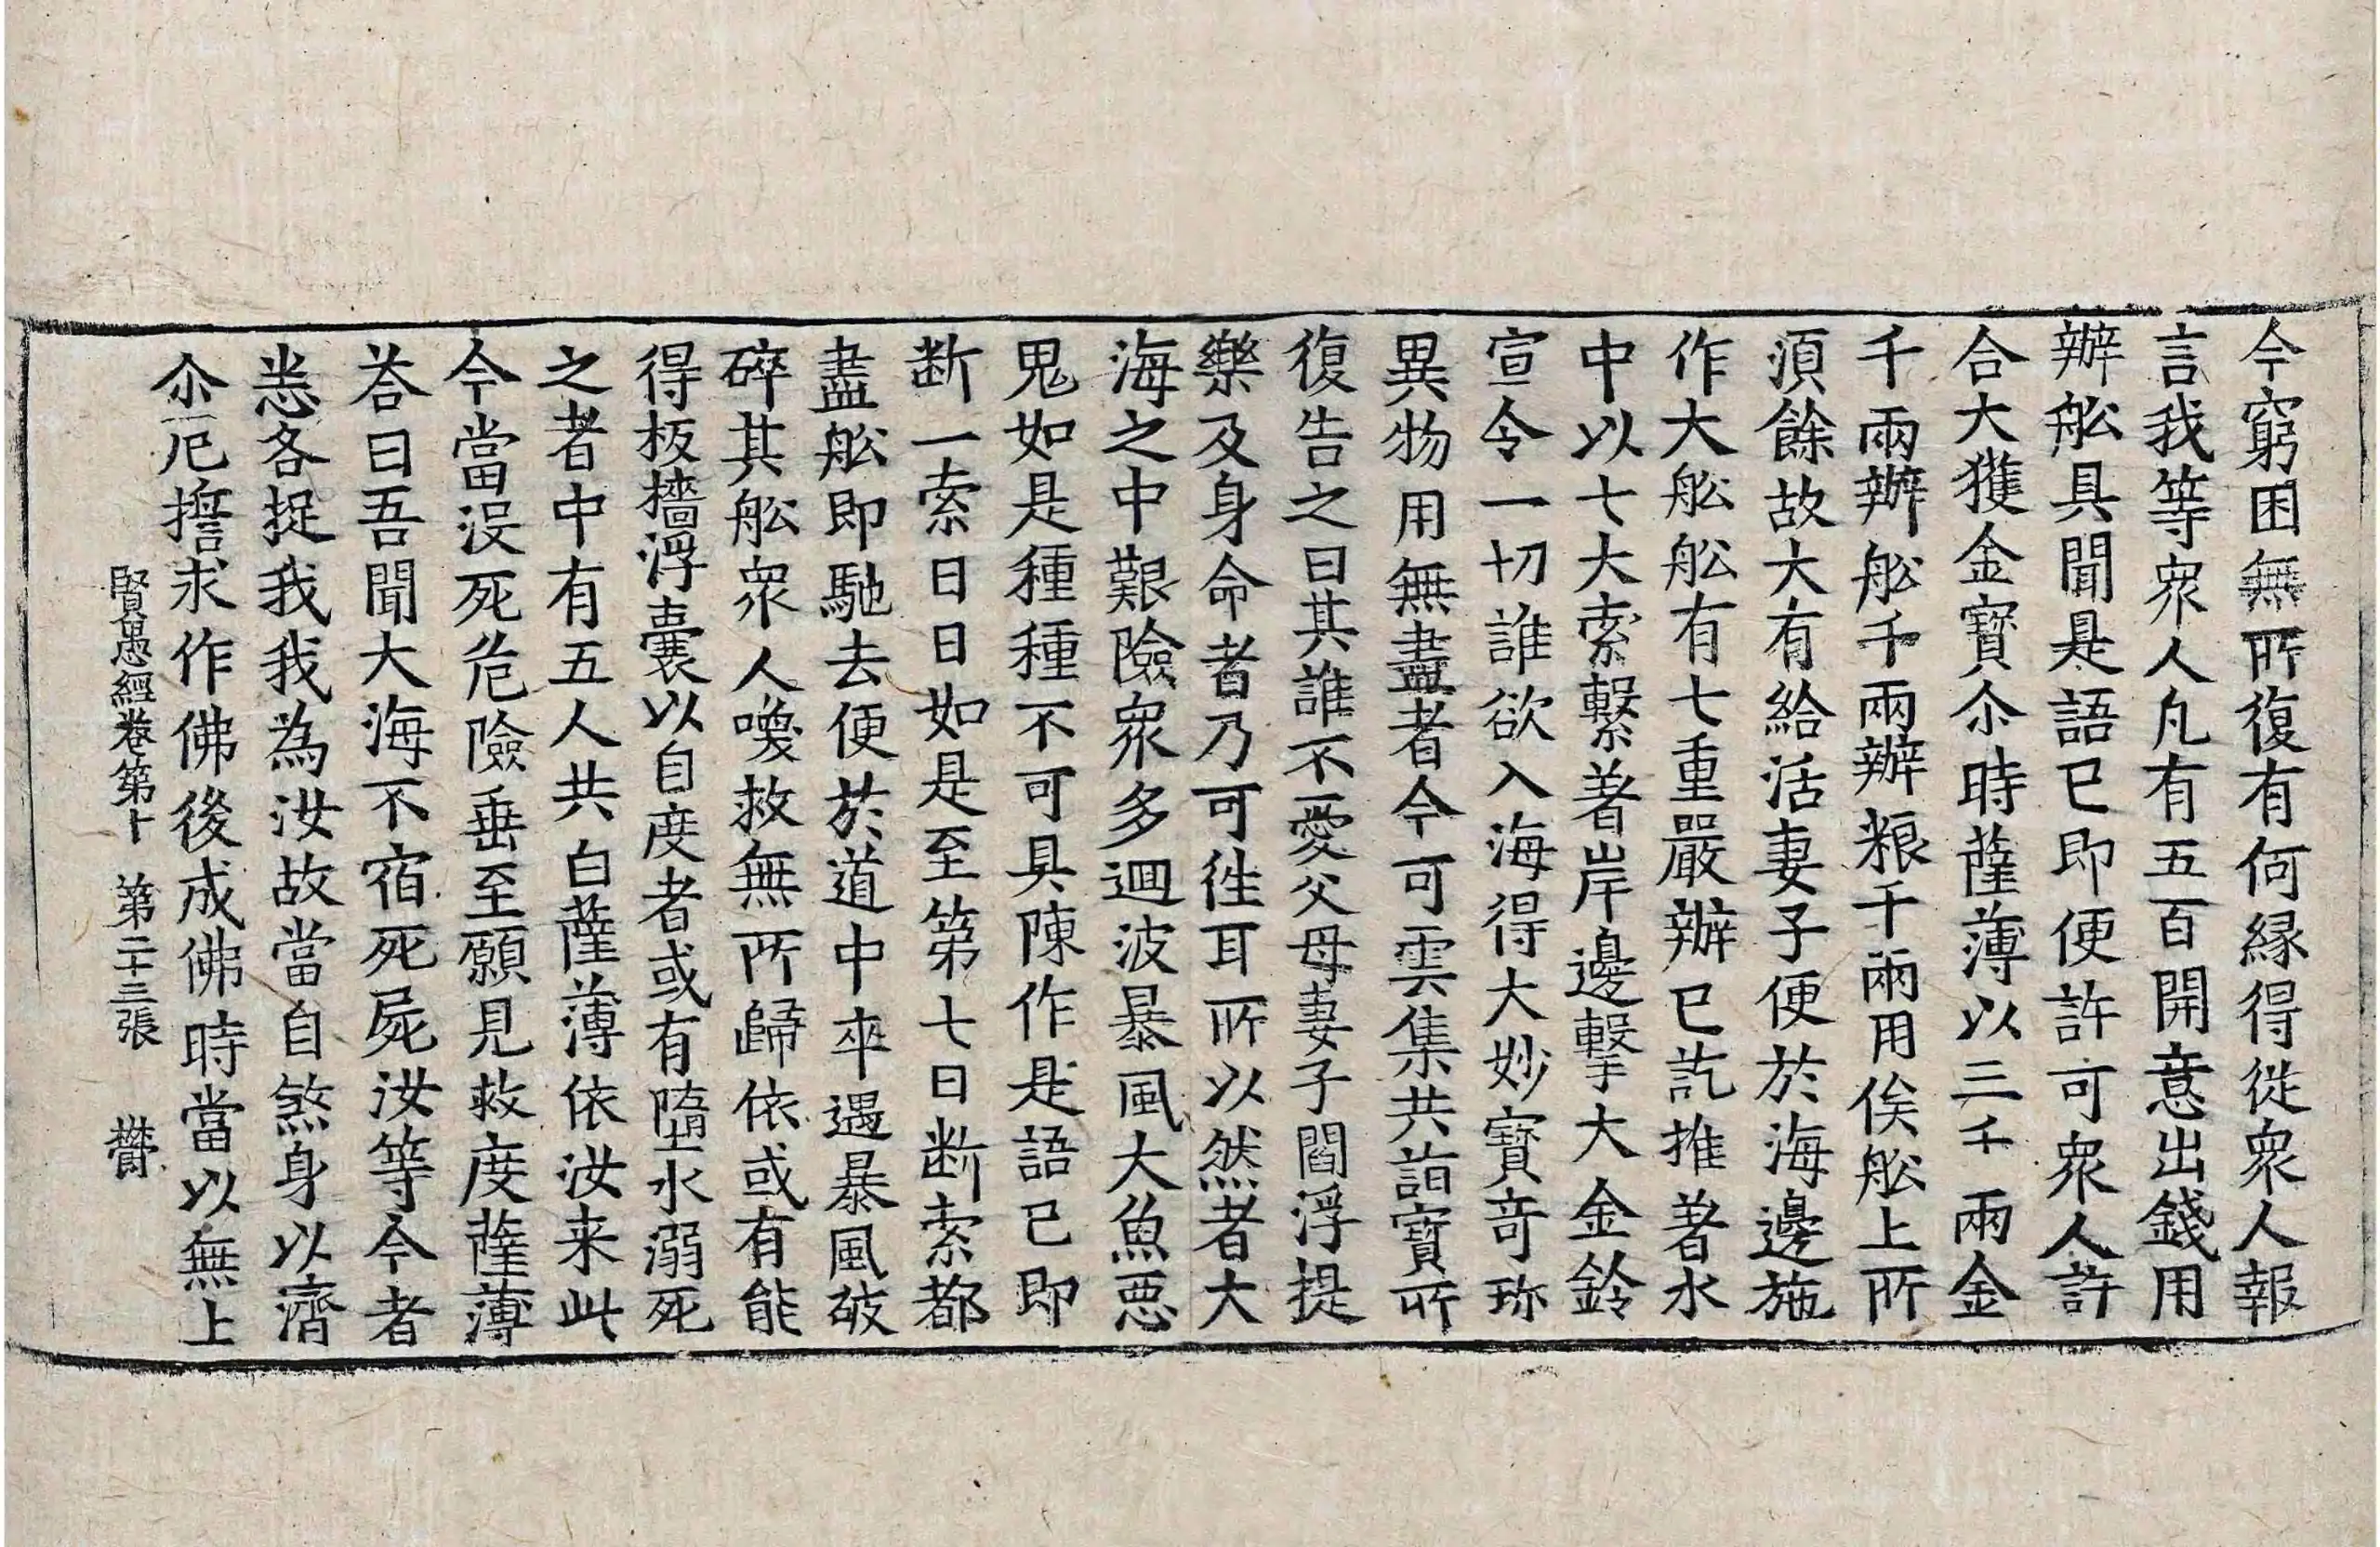 今窮困無所復有何縁得從衆人報
言我等衆人凡有五百開意出錢用
辦舩具聞是語已即便許可衆人許
合大獲金寶尒時薩薄以三千兩金
千兩辦舩千兩辦粮千兩用俟舩上所
須餘故大有給活妻子便於海邊施
作大舩舩有七重嚴辦已訖推著水
中以七大索繫著岸邊擊大金鈴
宣令一切誰欲入海得大妙寶竒珎
異物用無盡者今可雲集共詣寶所
復告之曰其誰不愛父母妻子閻浮提
樂及身命者乃可徃耳所以然者大
海之中艱險衆多迴波暴風大魚惡
鬼如是種種不可具陳作是語已即
断一索日日如是至第七日断索都
盡舩即馳去便於道中卒遇暴風破
碎其舩衆人喚救無所歸依或有能
得板檣浮囊以自度者或有墮水溺死
之者中有五人共白薩薄依汝来此
今當没死危險垂至願見救度薩薄
荅曰吾聞大海不宿死屍汝等今者
悉各捉我我為汝故當自煞身以濟
尒厄擔求作佛後成佛時當以無上
賢愚經卷第十 第二十三張 贊